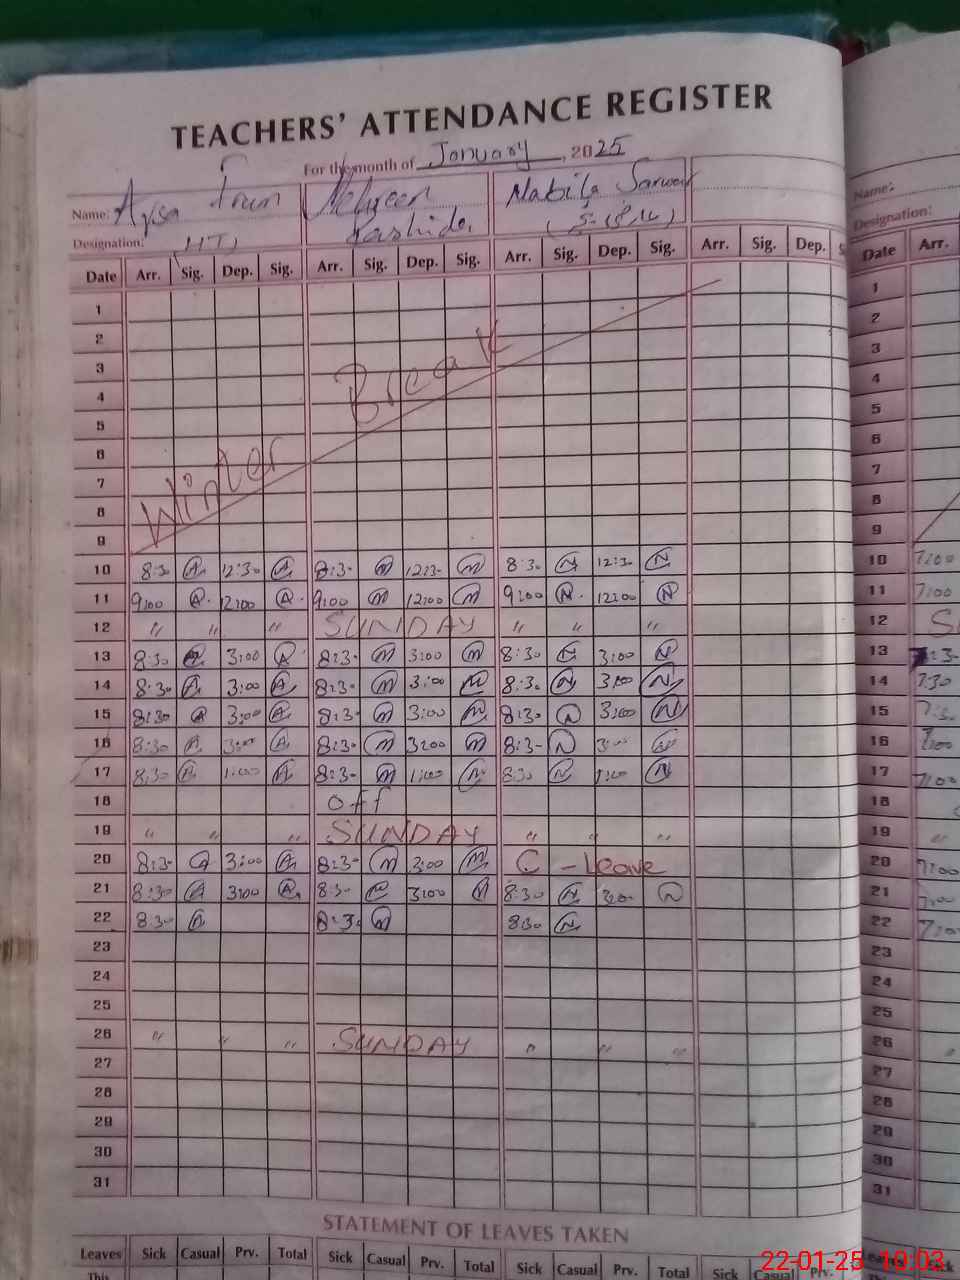 TEACHERS' ATTENDANCE REGISTER
For the month of January, 2025
Name: Mehreen Nabila Sarwar Name:
Designation: (HT) Rashida Designation:
Date Arr. Sig. Dep. Sig. Arr. Sig. Dep. Sig. Arr. Sig. Dep. Sig. Arr. Sig. Dep. S Date Arr.
1 1
2 2
3 3
4 4
5 5
6 6
7 7
8 8
9 9
Winter Break
10 8:30 A 12:30 A 8:3- M 12:3- M 8:30 N 12:30 N 10 7:00
11 9:00 A 12:00 A 9:00 M 12:00 M 9:00 N 12:00 N 11 7:00
12 " " " SUNDAY " " " 12 S
13 8:30 A 3:00 A 8:3- M 3:00 M 8:30 N 3:00 N 13 7:3-
14 8:30 A 3:00 A 8:3- M 3:00 M 8:30 N 3:00 N 14 7:30
15 8:30 A 3:00 A 8:3- M 3:00 M 8:3- N 3:00 N 15 7:3-
16 8:30 A 3:00 A 8:3- M 3:00 M 8:3- N 3:00 16 7:00
17 8:30 A 1:00 A 8:3- M 1:00 M 8:30 N 1:00 N 17 7:00
18 off 18
19 " " " SUNDAY " " " 19 "
20 8:3- A 3:00 A 8:3- M 3:00 M C - Leave 20 7:00
21 8:30 A 3:00 A 8:3- M 3:00 M 8:30 N 3:00 N 21 7:00
22 8:30 A 8:3- M 8:30 N 22 7:00
23 23
24 24
25 25
26 " " " SUNDAY " " " 26 "
27 27
28 28
29 29
30 30
31 31
STATEMENT OF LEAVES TAKEN
Leaves Sick Casual Prv. Total Sick Casual Prv. Total Sick Casual Prv. Total Sick Casual
This
22-01-25 10:03